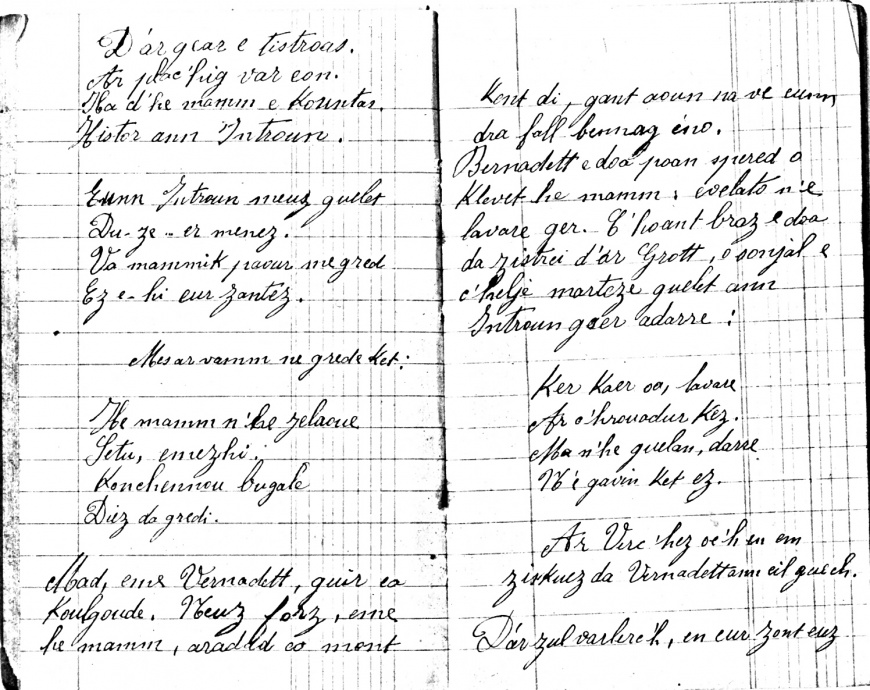 D'ar gear e tistroas.
Ar plac'hig var eon.
Ha d'he mamm e Kountas,
Histor ann Introun.
Eunn Introun meuz guelet
Du-ze-er menez.
Va mammik paour me gred
Ez e-hi eur zantez.
Mes ar vamm ne grede Ket:
He mamm n'he zelaoue
Setu, emezhi:
Konchennou bugale
Diez da gredi.
Mad, eme Vernadett, guir eo
Koulgoude. Neuz forz, eme
he mamm, arabad eo mont
Kont di, gant aoun na ve eunn
dra fall bennag eno.
Bernadett e doa poan spered o
Klevet he mamm; evelato n'e
lavare ger. C'hoant braz e doa
da zistrei d'ar Grott, o sonjal e
c'helje marteze guelet ann
Introun gaer adarre:
Ker Kaer oa, lavare
Ar c'hrouadur Kez.
Ma n'he guelan, darre
N'e gavin Ket ez.
Ar Verc'hez oc'h en em
ziskuez da Vernadett ann eil guech.
D'ar zul varlerc'h, en eur zont euz